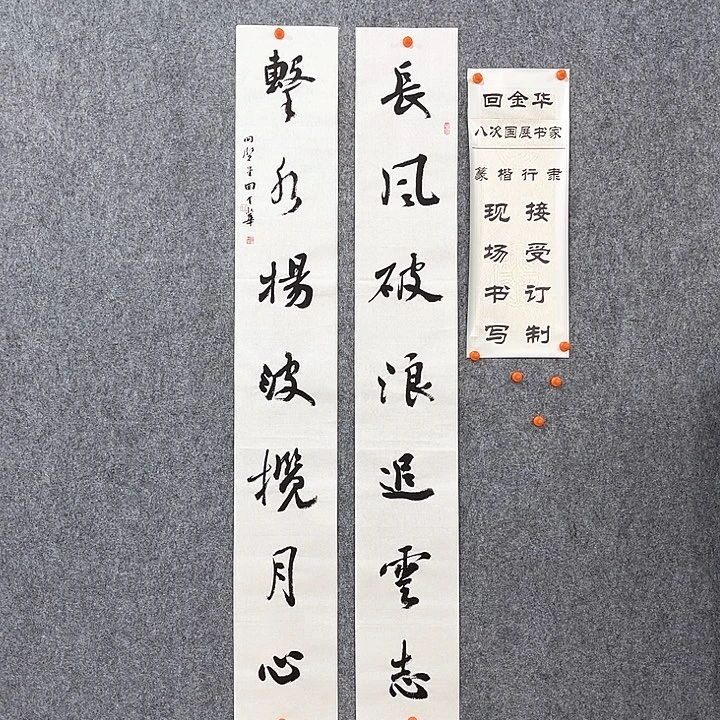 長風破浪追雲志
擊水揚波攬月心
回金华
八次国展书家
篆楷行隶
接受订制
现场书写